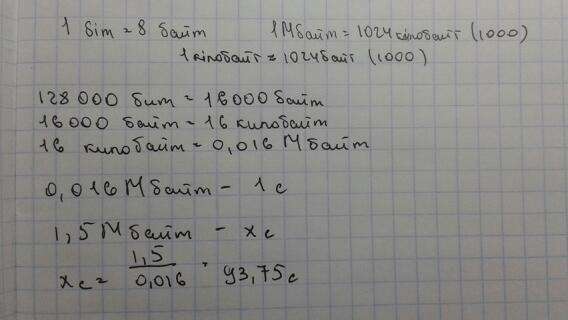 1 біт = 8 байт 1 Мбайт = 1024 кілобайт (1000)
1 кілобайт = 1024 байт (1000)
128 000 бит = 16000 байт
16 000 байт = 16 килобайт
16 килобайт = 0,016 Мбайт
0,016 Мбайт - 1 с
1,5 Мбайт - x с
x с = 1,5 / 0,016 = 93,75 с